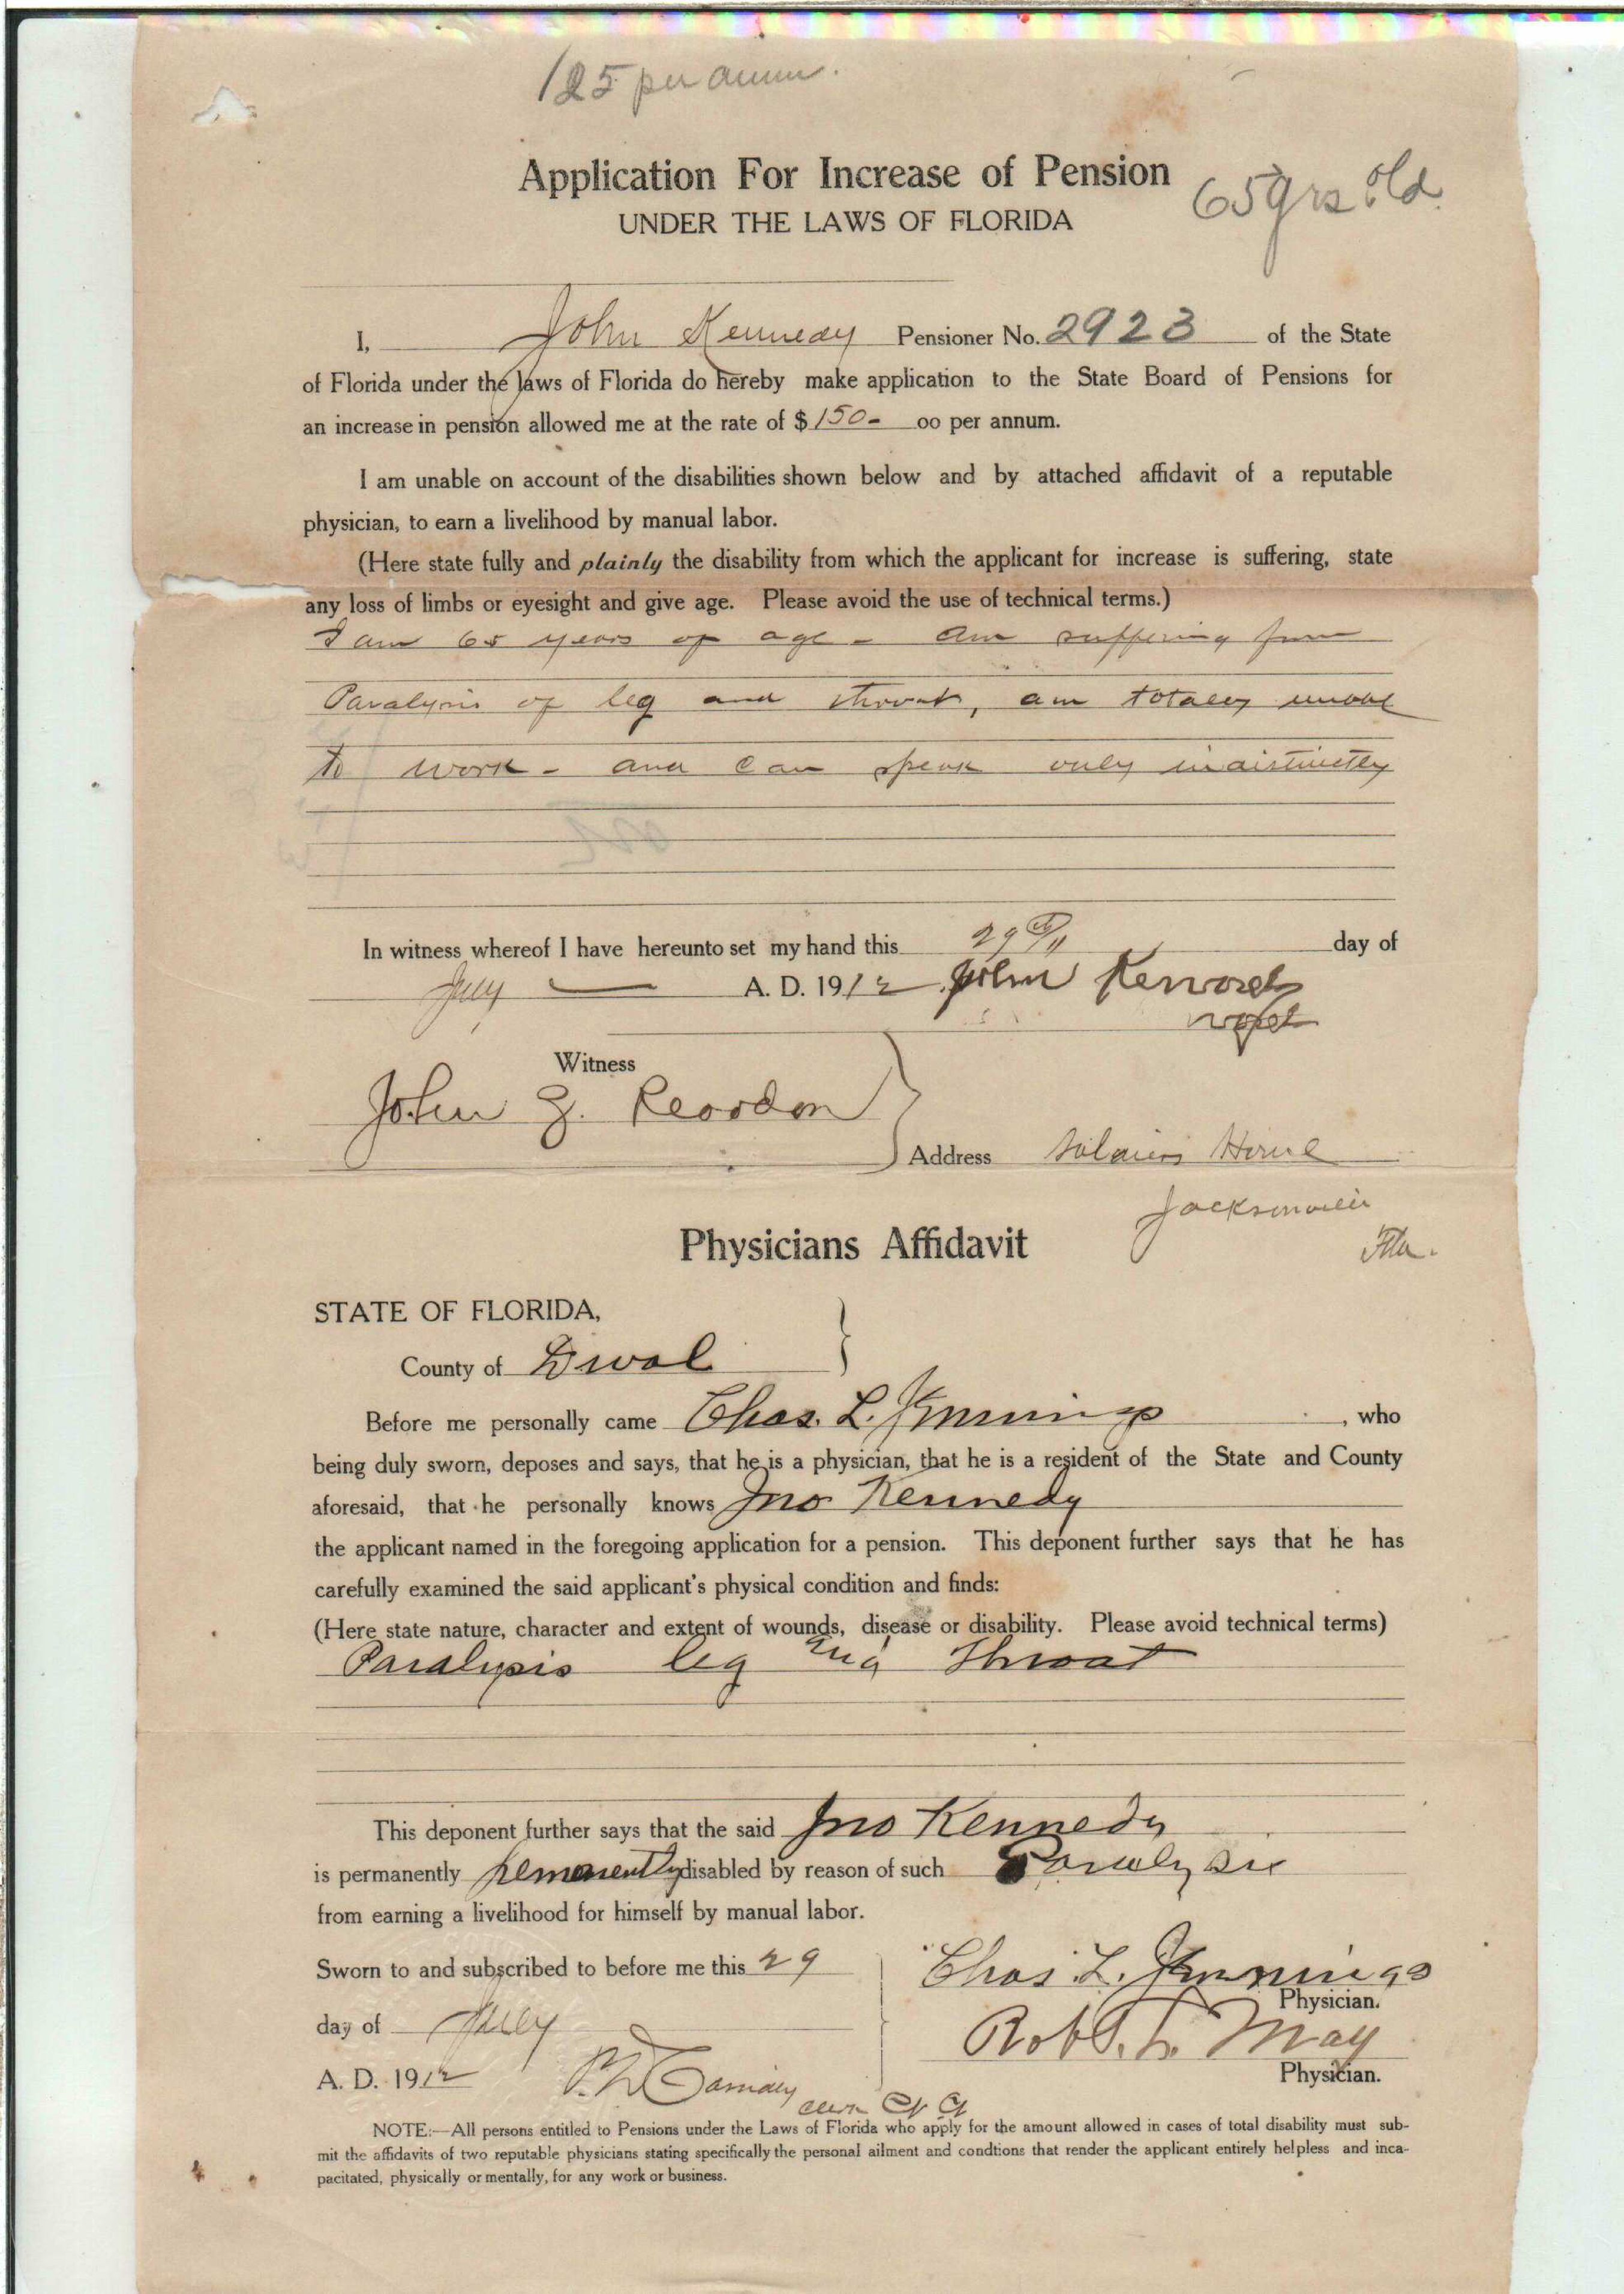 125 per annum.
Application For Increase of Pension
65 yrs old
UNDER THE LAWS OF FLORIDA
I, John Kennedy Pensioner No. 2923 of the State
of Florida under the laws of Florida do hereby make application to the State Board of Pensions for
an increase in pension allowed me at the rate of $ 150- oo per annum.
I am unable on account of the disabilities shown below and by attached affidavit of a reputable
physician, to earn a livelihood by manual labor.
(Here state fully and plainly the disability from which the applicant for increase is suffering, state
any loss of limbs or eyesight and give age. Please avoid the use of technical terms.)
I am 65 years of age - am suffering from
Paralysis of leg and throat, am totaly unable
to work - and can speak only indistinctly
In witness whereof I have hereunto set my hand this 29th day of
July A. D. 1912 John
Witness
John G. Reardon
Address Soldiers Home
Jacksonville
Fla.
Physicians Affidavit
STATE OF FLORIDA,
County of Duval
Before me personally came Chas. L. Jennings, who
being duly sworn, deposes and says, that he is a physician, that he is a resident of the State and County
aforesaid, that he personally knows Jno Kennedy
the applicant named in the foregoing application for a pension. This deponent further says that he has
carefully examined the said applicant's physical condition and finds:
(Here state nature, character and extent of wounds, disease or disability. Please avoid technical terms)
Paralysis leg and Throat
This deponent further says that the said Jno Kennedy
is permanently permanently disabled by reason of such Paralysis
from earning a livelihood for himself by manual labor.
Sworn to and subscribed to before me this 29
Chas. L. Jennings
Physician.
day of July
Robt. L. May
Physician.
A. D. 1912
Clerk Ct Ct
NOTE:—All persons entitled to Pensions under the Laws of Florida who apply for the amount allowed in cases of total disability must sub-
mit the affidavits of two reputable physicians stating specifically the personal ailment and condtions that render the applicant entirely helpless and inca-
pacitated, physically or mentally, for any work or business.